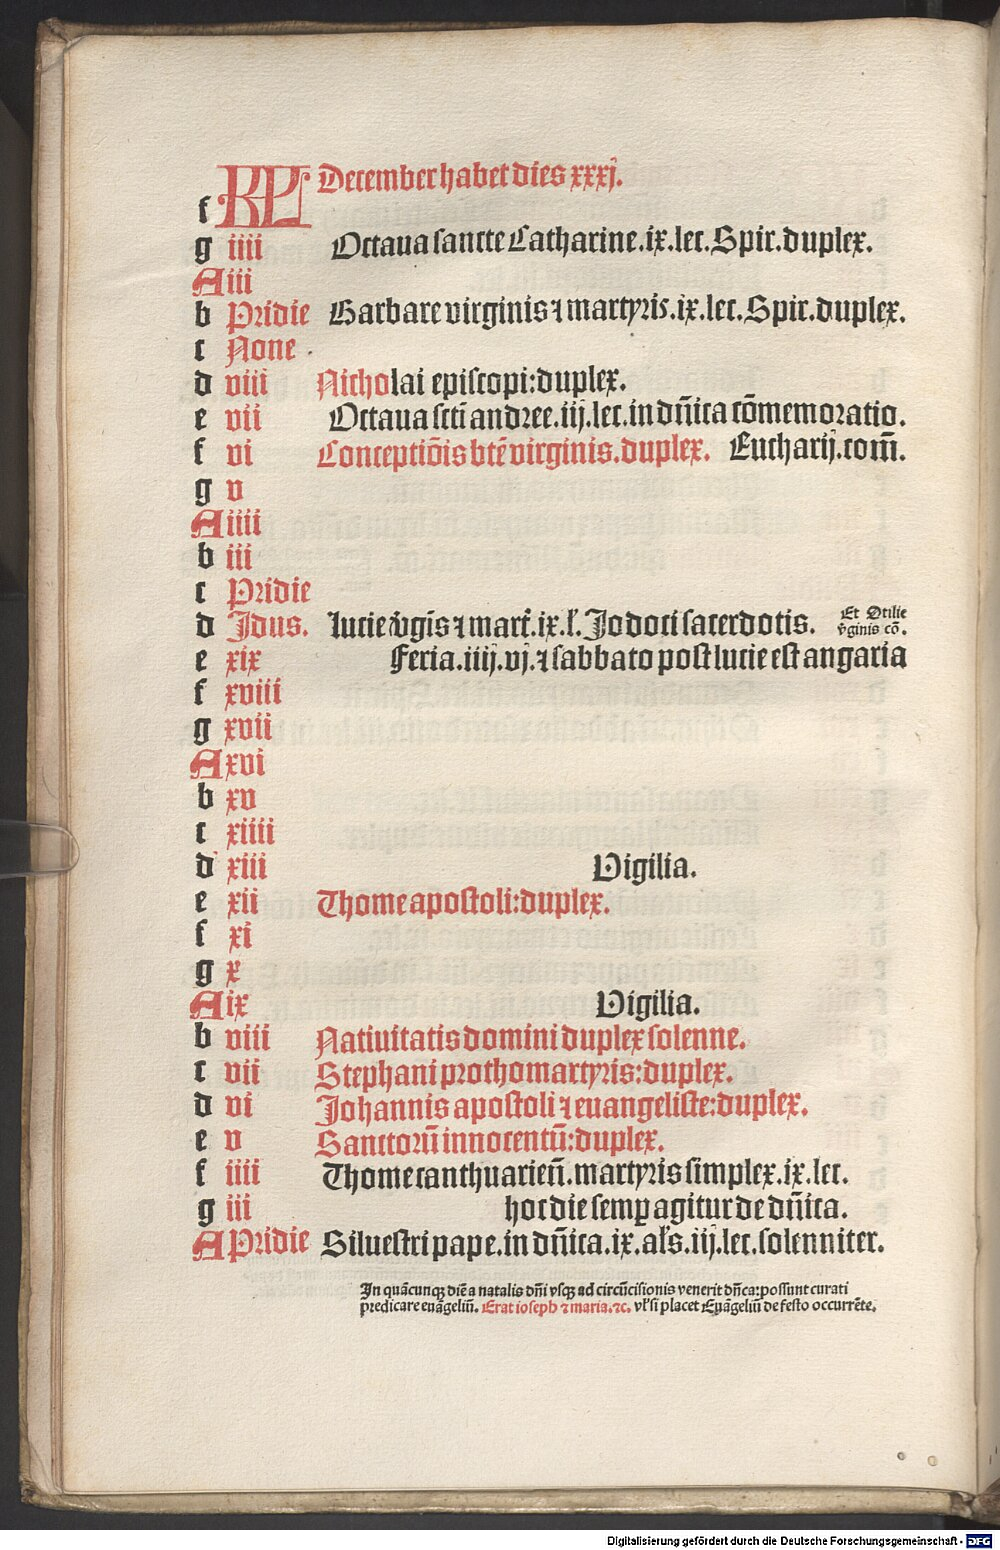 KL December habet dies xxxj.
f
g iiii Octaua sancte Catharine.ix.lec.Spir.duplex.
A iii
b Pridie Barbare virginis ⁊ martyris.ix.lec.Spir.duplex.
c None
d viii Nicholai episcopi:duplex.
e vii Octaua scti andree.iij.lec.in dn̄ica cōmemoratio.
f vi Conceptiōis btē virginis.duplex. Eucharij.com̄.
g v
A iiii
b iii
c Pridie
d Jdus. lucie v̄gis ⁊ mart̄.ix.l. Jodoci sacerdotis. Et Otilie
v̄ginis cō.
e xix Feria.iiij.vj.⁊ sabbato post lucie est angaria
f xviii
g xvii
A xvi
b xv
c xiiii
d xiii Vigilia.
e xii Thome apostoli:duplex.
f xi
g x
A ix Vigilia.
b viii Natiuitatis domini duplex solenne.
c vii Stephani prothomartyris:duplex.
d vi Johannis apostoli ⁊ euangeliste:duplex.
e v Sanctorū innocentū:duplex.
f iiii Thome canthuarien̄.martyris simplex.ix.lec.
g iii hoc die semꝑ agitur de dn̄ica.
A Pridie Siluestri pape.in dn̄ica.ix.al's.iij.lec.solenniter.
In quācunqꝫ diē a natalis dn̄i vsqꝫ ad circūcisionis venerit dn̄ca:possunt curati
predicare euāgeliū. Erat ioseph ⁊ maria.⁊c. vl' si placet Euāgeliū de festo occurrēte.
Digitalisierung gefördert durch die Deutsche Forschungsgemeinschaft - DFG